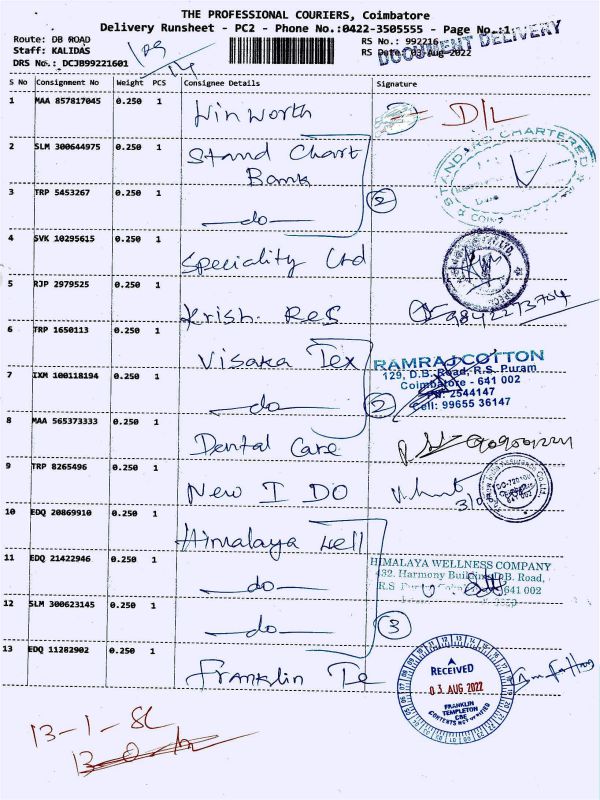 THE PROFESSIONAL COURIERS, Coimbatore
Delivery Runsheet - PC2 - Phone No.:0422-3505555 - Page No.:1
Route: DB ROAD
Staff: KALIDAS
DRS No.: DCJB99221601
RS No.: 992216
RS Date: 03-Aug-2022
DOCUMENT DELIVERY
S No Consignment No Weight PCS Consignee Details Signature
1 MAA 857817045 0.250 1 Winworth D/L
2 SLM 300644975 0.250 1 Stand Chart Bank
STANDARD CHARTERED
3 TRP 5453267 0.250 1 —do— 2
4 SVK 10295615 0.250 1 Speciality Ltd
5 RJP 2979525 0.250 1 Krish. Res 9842273704
6 TRP 1650113 0.250 1 Visaka Tex
RAMRAJ COTTON
129, D.B. Road, R.S. Puram
Coimbatore - 641 002
2544147
Cell: 99655 36147
7 IXM 100118194 0.250 1 —do— 2
8 MAA 565373333 0.250 1 Dental Care
9 TRP 8265496 0.250 1 New I DO
10 EDQ 20869910 0.250 1 Himalaya Well
HIMALAYA WELLNESS COMPANY
432. Harmony Building D.B. Road,
R.S. 641 002
11 EDQ 21422946 0.250 1 —do—
12 SLM 300623145 0.250 1 —do— 3
13 EDQ 11282902 0.250 1 Franklin Te
RECEIVED
03 AUG 2022
FRANKLIN
TEMPLETON
CBE
CONTENTS NOT VERIFIED
13-1-SL